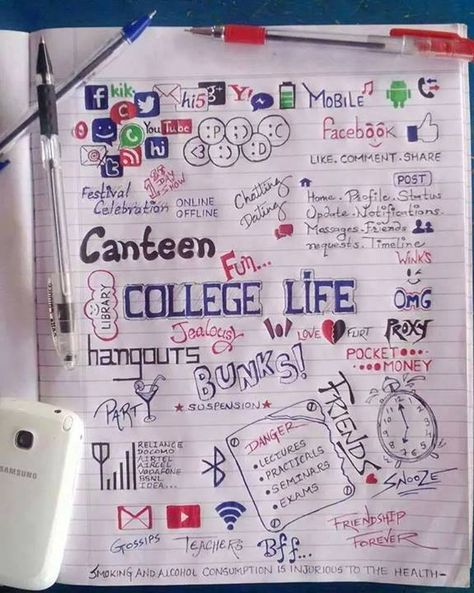 kik
hi5
g+
Y!
MOBILE
You Tube
hi
:P :) :C
<3 :O :D
Facebook
LIKE. COMMENT. SHARE
Festival
Celebration
ONLINE
OFFLINE
Chatting
Dating
POST
Home. Profile. Status
Update. Notifications.
Messages. Friends
requests. Timeline
Canteen
Fun...
WINKS
LIBRARY
COLLEGE LIFE
OMG
Jealousy
LOVE FLIRT
PROXY
hangouts
POCKET
MONEY
BUNKS!
PARTY
SUSPENSION
FRIENDS
DANGER
LECTURES
PRACTICALS
SEMINARS
EXAMS
RELIANCE
DOCOMO
AIRTEL
AIRCEL
VODAFONE
BSNL
IDEA...
SNOOZE
SAMSUNG
GOSSIPS
TEACHERS
Bff...
FRIENDSHIP
FOREVER
SMOKING AND ALCOHOL CONSUMPTION IS INJURIOUS TO THE HEALTH-